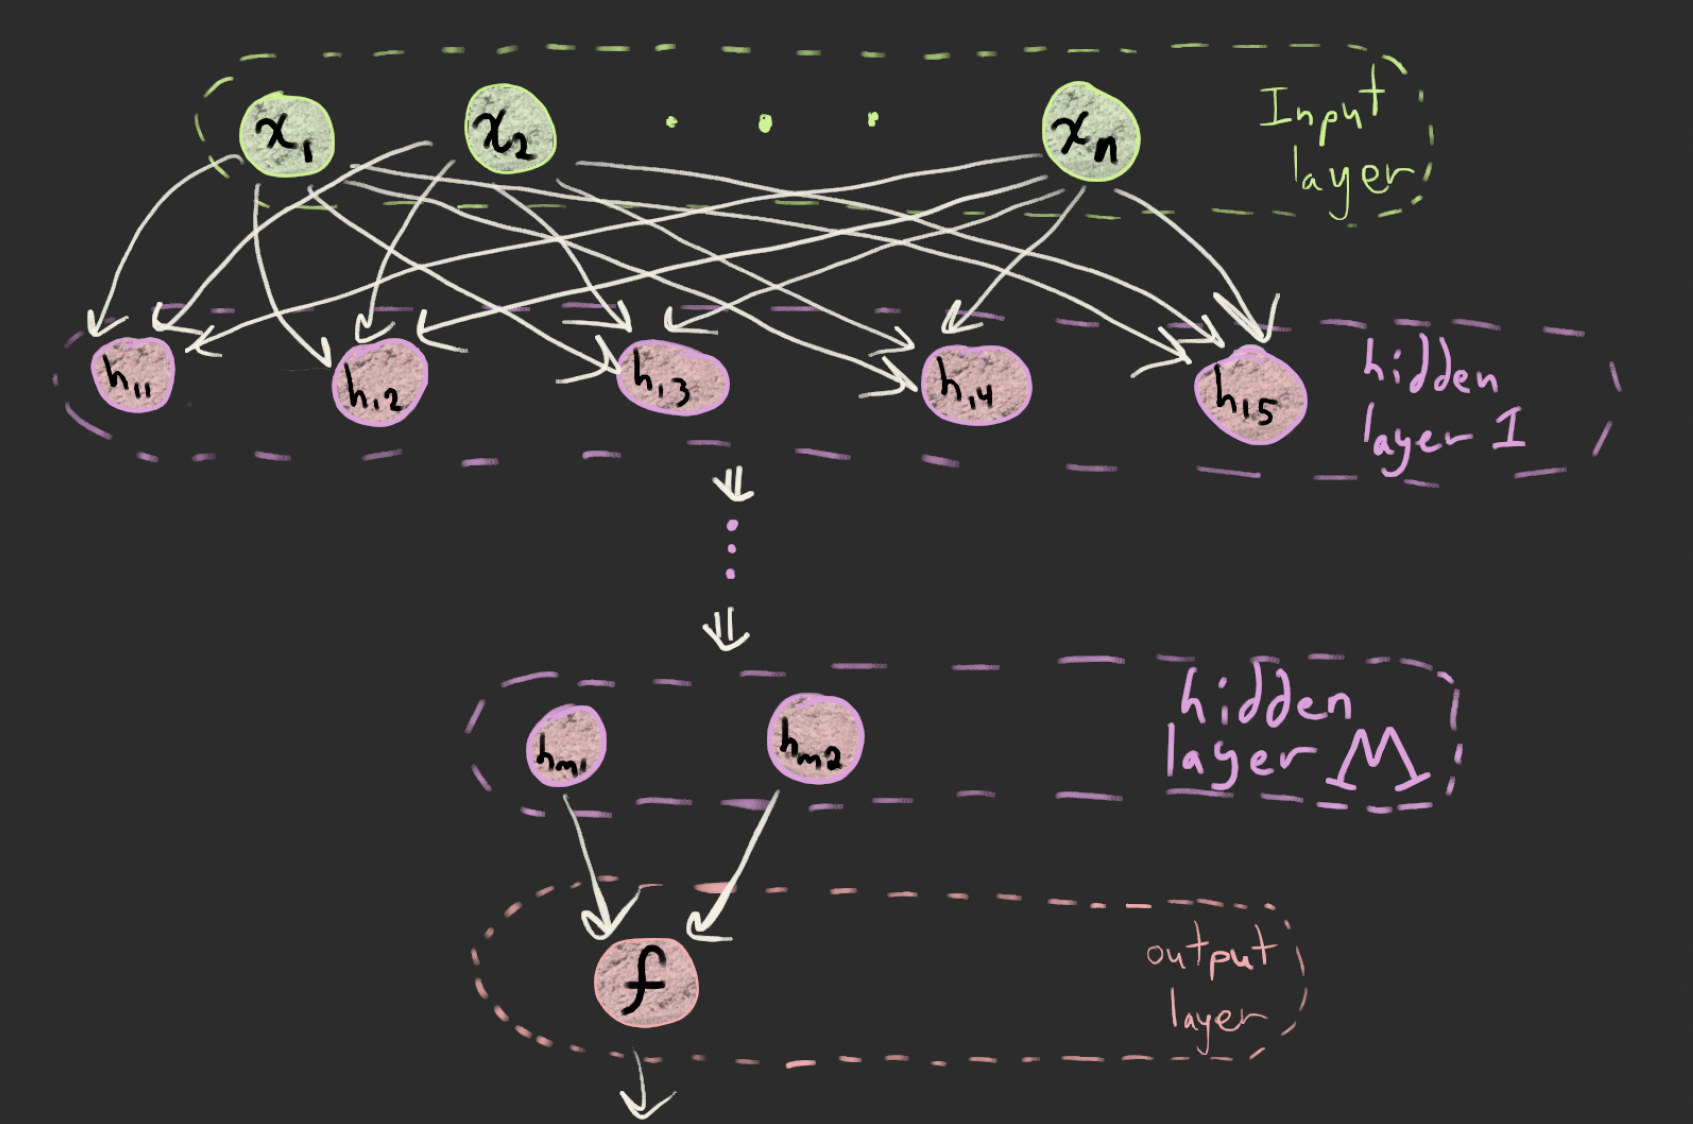 x1 x2 . . . xn
Input
layer
h11 h12 h13 h14 h15
hidden
layer 1
hm1 hm2
hidden
layer M
f
output
layer